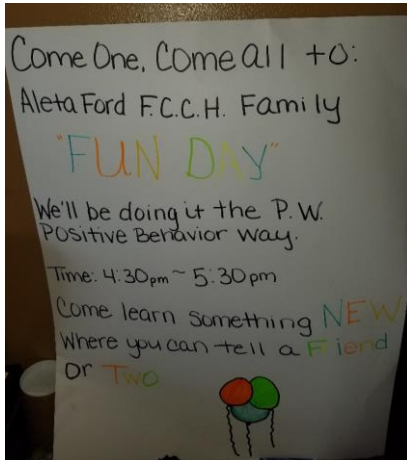 Come One, Come all to:
Aleta Ford F.C.C.H. Family
"FUN DAY"
We'll be doing it the P.W.
Positive Behavior way.
Time: 4:30pm ~ 5:30pm
Come learn something NEW
Where you can tell a Fiend
or Two